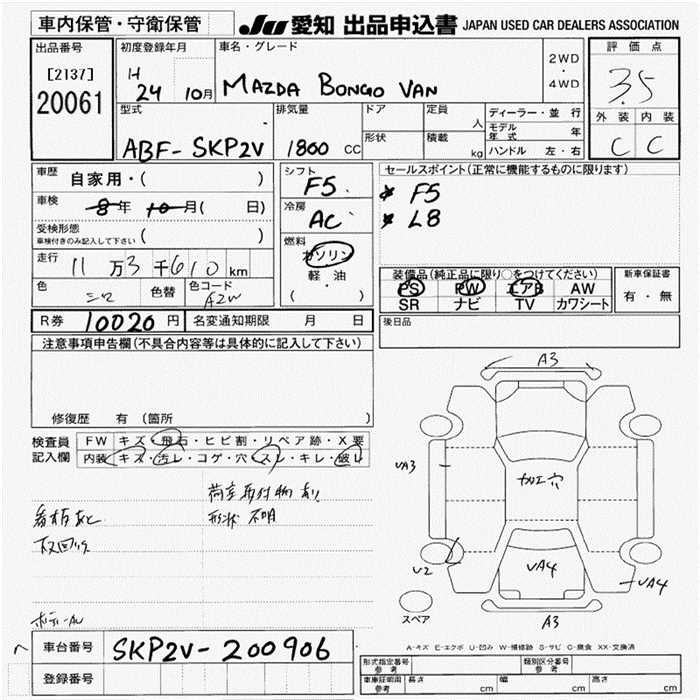 車内保管・守衛保管
JU 愛知 出品申込書 JAPAN USED CAR DEALERS ASSOCIATION
出品番号
[2137]
20061
初度登録年月
H 24 10月
車名・グレード
MAZDA BONGO VAN
2WD
・
4WD
評価点
3.5
外装 内装
C C
型式
ABF-SKP2V
排気量
1800 CC
ドア
形状
定員
人
積載
kg
ディーラー・並行
モデル年式 年
ハンドル 左・右
車歴
自家用・( )
車検
8年 10月( 日)
受検形態
車検付きのみ記入して下さい ( )
走行
11万3千610km
色
シロ
色替
色コード
A2W
シフト
F5
冷房
AC
燃料
ガソリン
軽油
( ・ )
セールスポイント(正常に機能するものに限ります)
F5
L8
装備品(純正品に限り○をつけてください)
PS PW エアB AW
SR ナビ TV カワシート
新車保証書
有・無
R券 10020円
名変通知期限 月 日
後日品
注意事項申告欄(不具合内容等は具体的に記入して下さい)
修復歴 有 (箇所 )
検査員
記入欄
FW キズ・飛石・ヒビ割・リペア跡・X要
内装 キズ・汚レ・コゲ・穴・スレ・キレ・破レ
荷室取付物あり
看板あと
形状 不明
下回り
A3
UA3
加工穴
U2
UA4
UA4
A3
スペア
A-キズ E-エクボ U-凹み W-補修跡 S-サビ C-腐食 XX-交換済
車台番号 SKP2V-200906
登録番号
形式指定番号 参考
類別区分番号 参考
車庫証明用 参考
長さ cm
幅 cm
高さ cm